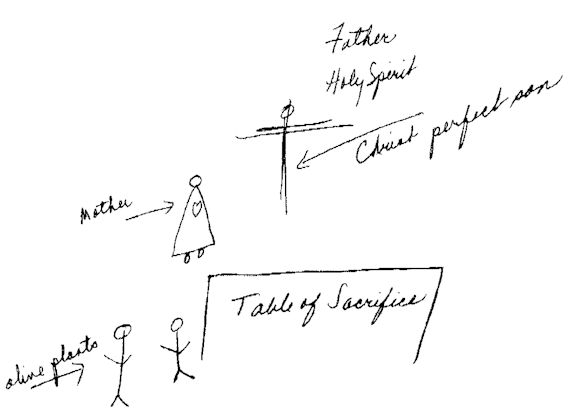 Father
Holy Spirit
Christ perfect son
Mother
Table of Sacrifice
olive plants